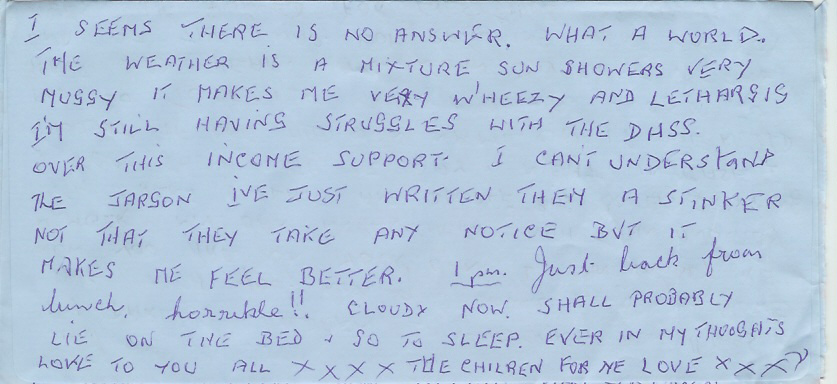 I SEEMS THERE IS NO ANSWER. WHAT A WORLD.
THE WEATHER IS A MIXTURE SUN SHOWERS VERY
MUGGY IT MAKES ME VERY WHEEZY AND LETHARGIS
I'M STILL HAVING STRUGGLES WITH THE DHSS.
OVER THIS INCOME SUPPORT. I CANT UNDERSTAND
THE JARGON IVE JUST WRITTEN THEM A STINKER
NOT THAT THEY TAKE ANY NOTICE BUT IT
MAKES ME FEEL BETTER. 1 pm. Just back from
lunch, horrible!! CLOUDY NOW. SHALL PROBABLY
LIE ON THE BED & GO TO SLEEP. EVER IN MY THUOGHTS
LOVE TO YOU ALL X X X X THE CHILREN FOR ME LOVE X X X